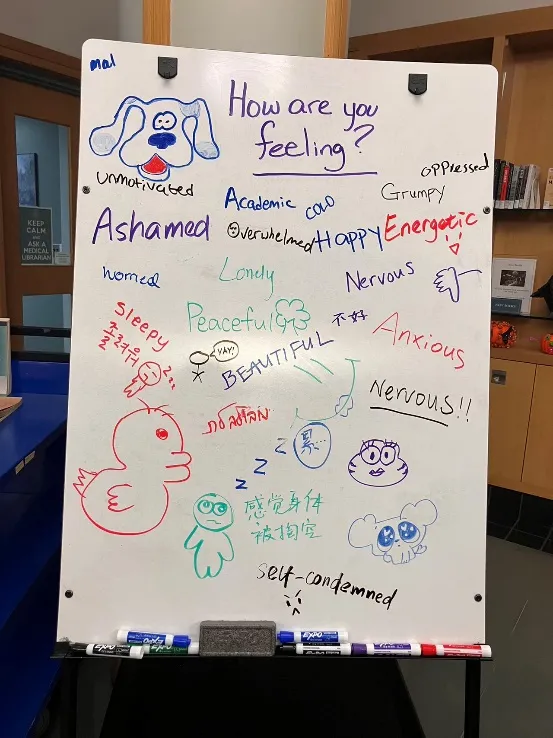 mal
How are you
feeling?
unmotivated
oppressed
Academic
cold
Grumpy
Ashamed
Overwhelmed
Happy
Energetic
worried
Lonely
Nervous
Sleepy
Peaceful
不好
Anxious
YAY!
BEAUTIFUL
Nervous!!
z z z
累...
感觉身体
被掏空
self-condemned
KEEP
CALM
AND
ASK A
MEDICAL
LIBRARIAN
EXPO
EXPO
EXPO